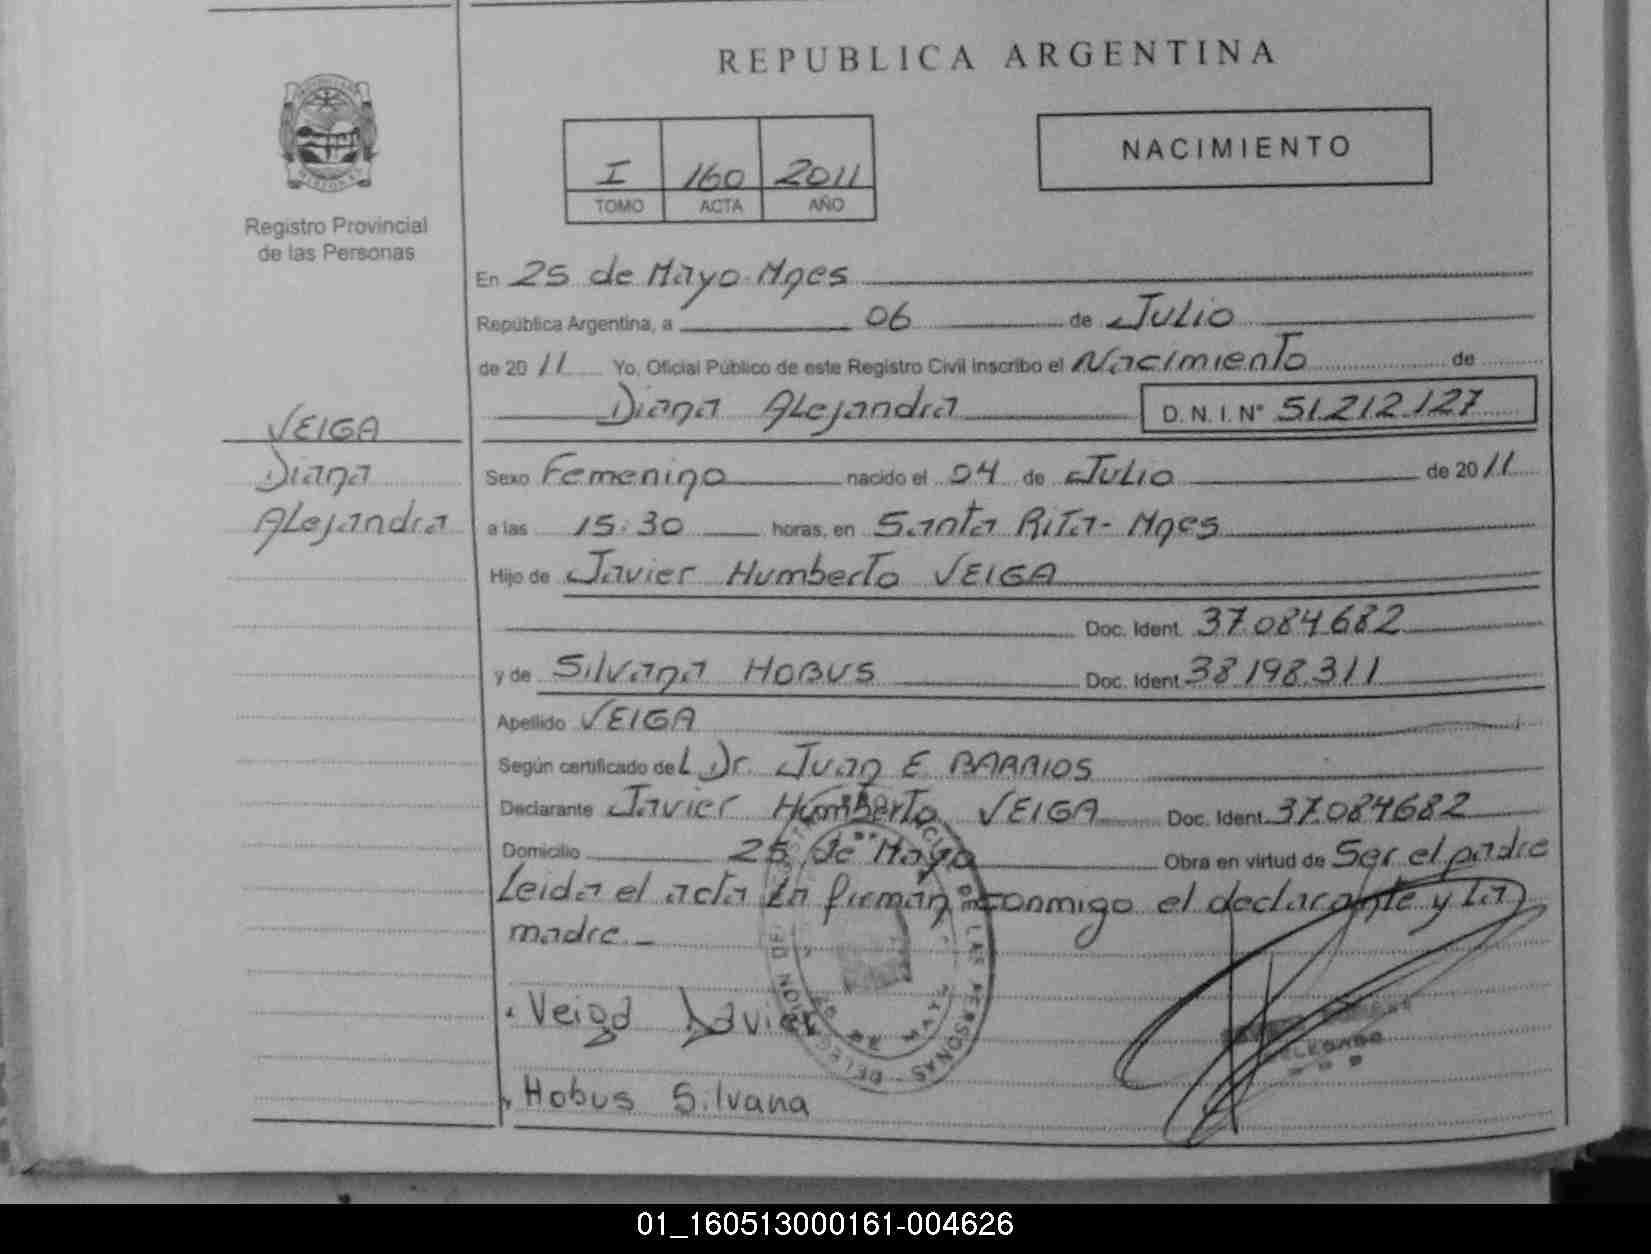 REPUBLICA ARGENTINA
I 160 2011
TOMO ACTA AÑO
NACIMIENTO
Registro Provincial
de las Personas
En 25 de Mayo-Mnes
República Argentina, a 06 de Julio
de 2011 Yo, Oficial Público de este Registro Civil Inscribo el Nacimiento de
Diana Alejandra D. N. I. N° 51.212.127
VEIGA
Diana
Alejandra
Sexo Femenino nacido el 04 de Julio de 2011
a las 15.30 horas, en Santa Rita-Mnes
Hijo de Javier Humberto VEIGA
Doc. Ident. 37.084.682
y de Silvana HOBUS Doc. Ident. 38.198.311
Apellido VEIGA
Según certificado del Dr. Juan E BARRIOS
Declarante Javier Humberto VEIGA Doc. Ident. 37.084682
Domicilio 25 de Mayo Obra en virtud de Ser el padre
Leida el acta la firman conmigo el declarante y La
madre._
Veiga Javier
Hobus Silvana
DE LAS PERSONAS - DELEGACION
25 DE MAYO
DELEGADO
01_160513000161-004626